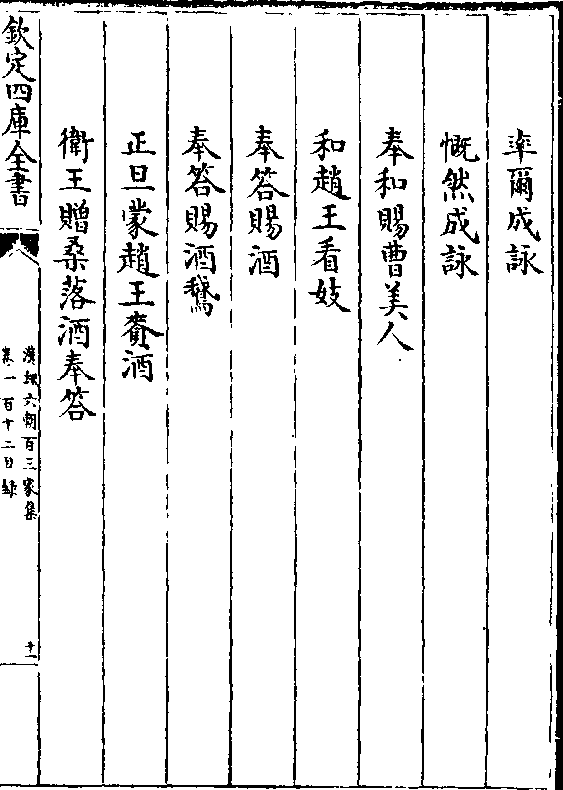 率爾成詠
慨然成詠
奉和賜曹美人
和趙王看妓
奉答賜酒
奉答賜酒鵝
正旦蒙趙王賚酒
衛王贈桑落酒奉答
欽定四庫全書
漢魏六朝百三家集
卷一百十二目錄
十一